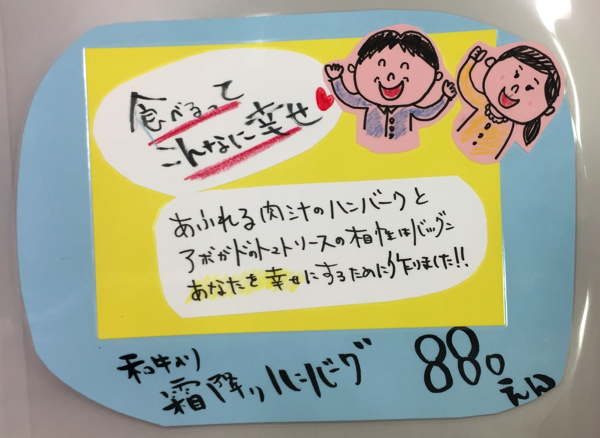 食べるって
こんなに幸せ
あふれる肉汁のハンバーグと
アボガドのトマトソースの相性はバツグン
あなたを幸せにするために作りました!!
和牛入り
霜降りハンバーグ 880
えん